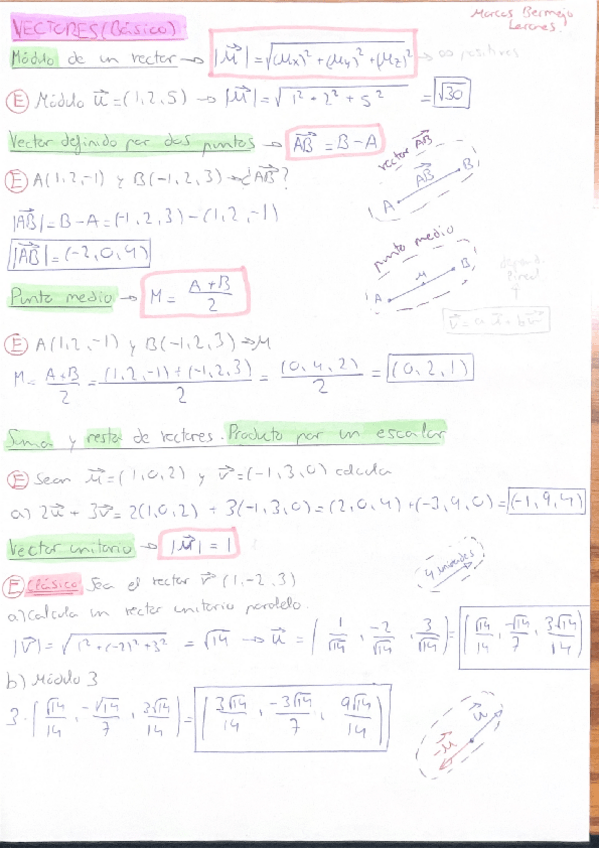 VECTORES (Básico)
Marcos Bermejo
Módulo de un vector → |u⃗| = √((ux)² + (uy)² + (uz)²) → ∞ positivos
Ⓔ Módulo u⃗ = (1, 2, 5) → |u⃗| = √(1² + 2² + 5²) = √30
Vector definido por dos puntos → AB⃗ = B - A
vector AB⃗
Ⓔ A(1, 2, -1) y B(-1, 2, 3) → ¿AB⃗?
A AB⃗ B
|AB⃗| = B - A = (-1, 2, 3) - (1, 2, -1)
|AB⃗| = (-2, 0, 4)
punto medio
A M B
Punto medio → M = (A + B)/2
Ⓔ A(1, 2, -1) y B(-1, 2, 3) → M
M = (A + B)/2 = ((1, 2, -1) + (-1, 2, 3))/2 = (0, 4, 2)/2 = (0, 2, 1)
Suma y resta de vectores. Producto por un escalar
Ⓔ Sean u⃗ = (1, 0, 2) y v⃗ = (-1, 3, 0) calcula
a) 2u⃗ + 3v⃗ = 2(1, 0, 2) + 3(-1, 3, 0) = (2, 0, 4) + (-3, 9, 0) = (-1, 9, 4)
Vector unitario → |u⃗| = 1
4 unidades
Ⓔ Clásico Sea el vector v⃗ (1, -2, 3)
a) Calcula un vector unitario paralelo.
|v⃗| = √(1² + (-2)² + 3²) = √14 → u⃗ = (1/√14, -2/√14, 3/√14) = (√14/14, -√14/7, 3√14/14)
b) Módulo 3
3 · (√14/14, -√14/7, 3√14/14) = (3√14/14, -3√14/7, 9√14/14)
u⃗
-u⃗